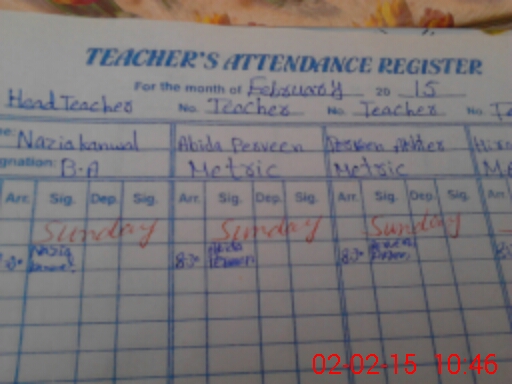 TEACHER'S ATTENDANCE REGISTER
For the month of February 20 15
Head Teacher No. Teacher No. Teacher No.
Nazia kanwal Abida Perveen
gnation: B.A Metric Metric
Arr. Sig. Dep. Sig. Arr. Sig. Dep. Sig. Arr. Sig. Dep. Sig. Arr.
Sunday Sunday Sunday
Nazia 8:30 Abida 8:30
Perveen
02-02-15 10.46